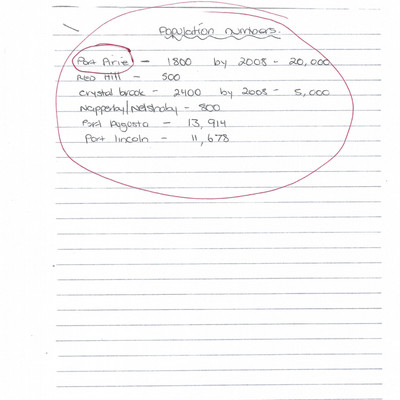 Population numbers.
Port Pirie - 1800 by 2008 - 20,000
Red Hill - 500
Crystal brook - 2400 by 2008 - 5,000
Napperby/Nelshaby - 800
Port Augusta - 13,914
Port lincoln - 11,678